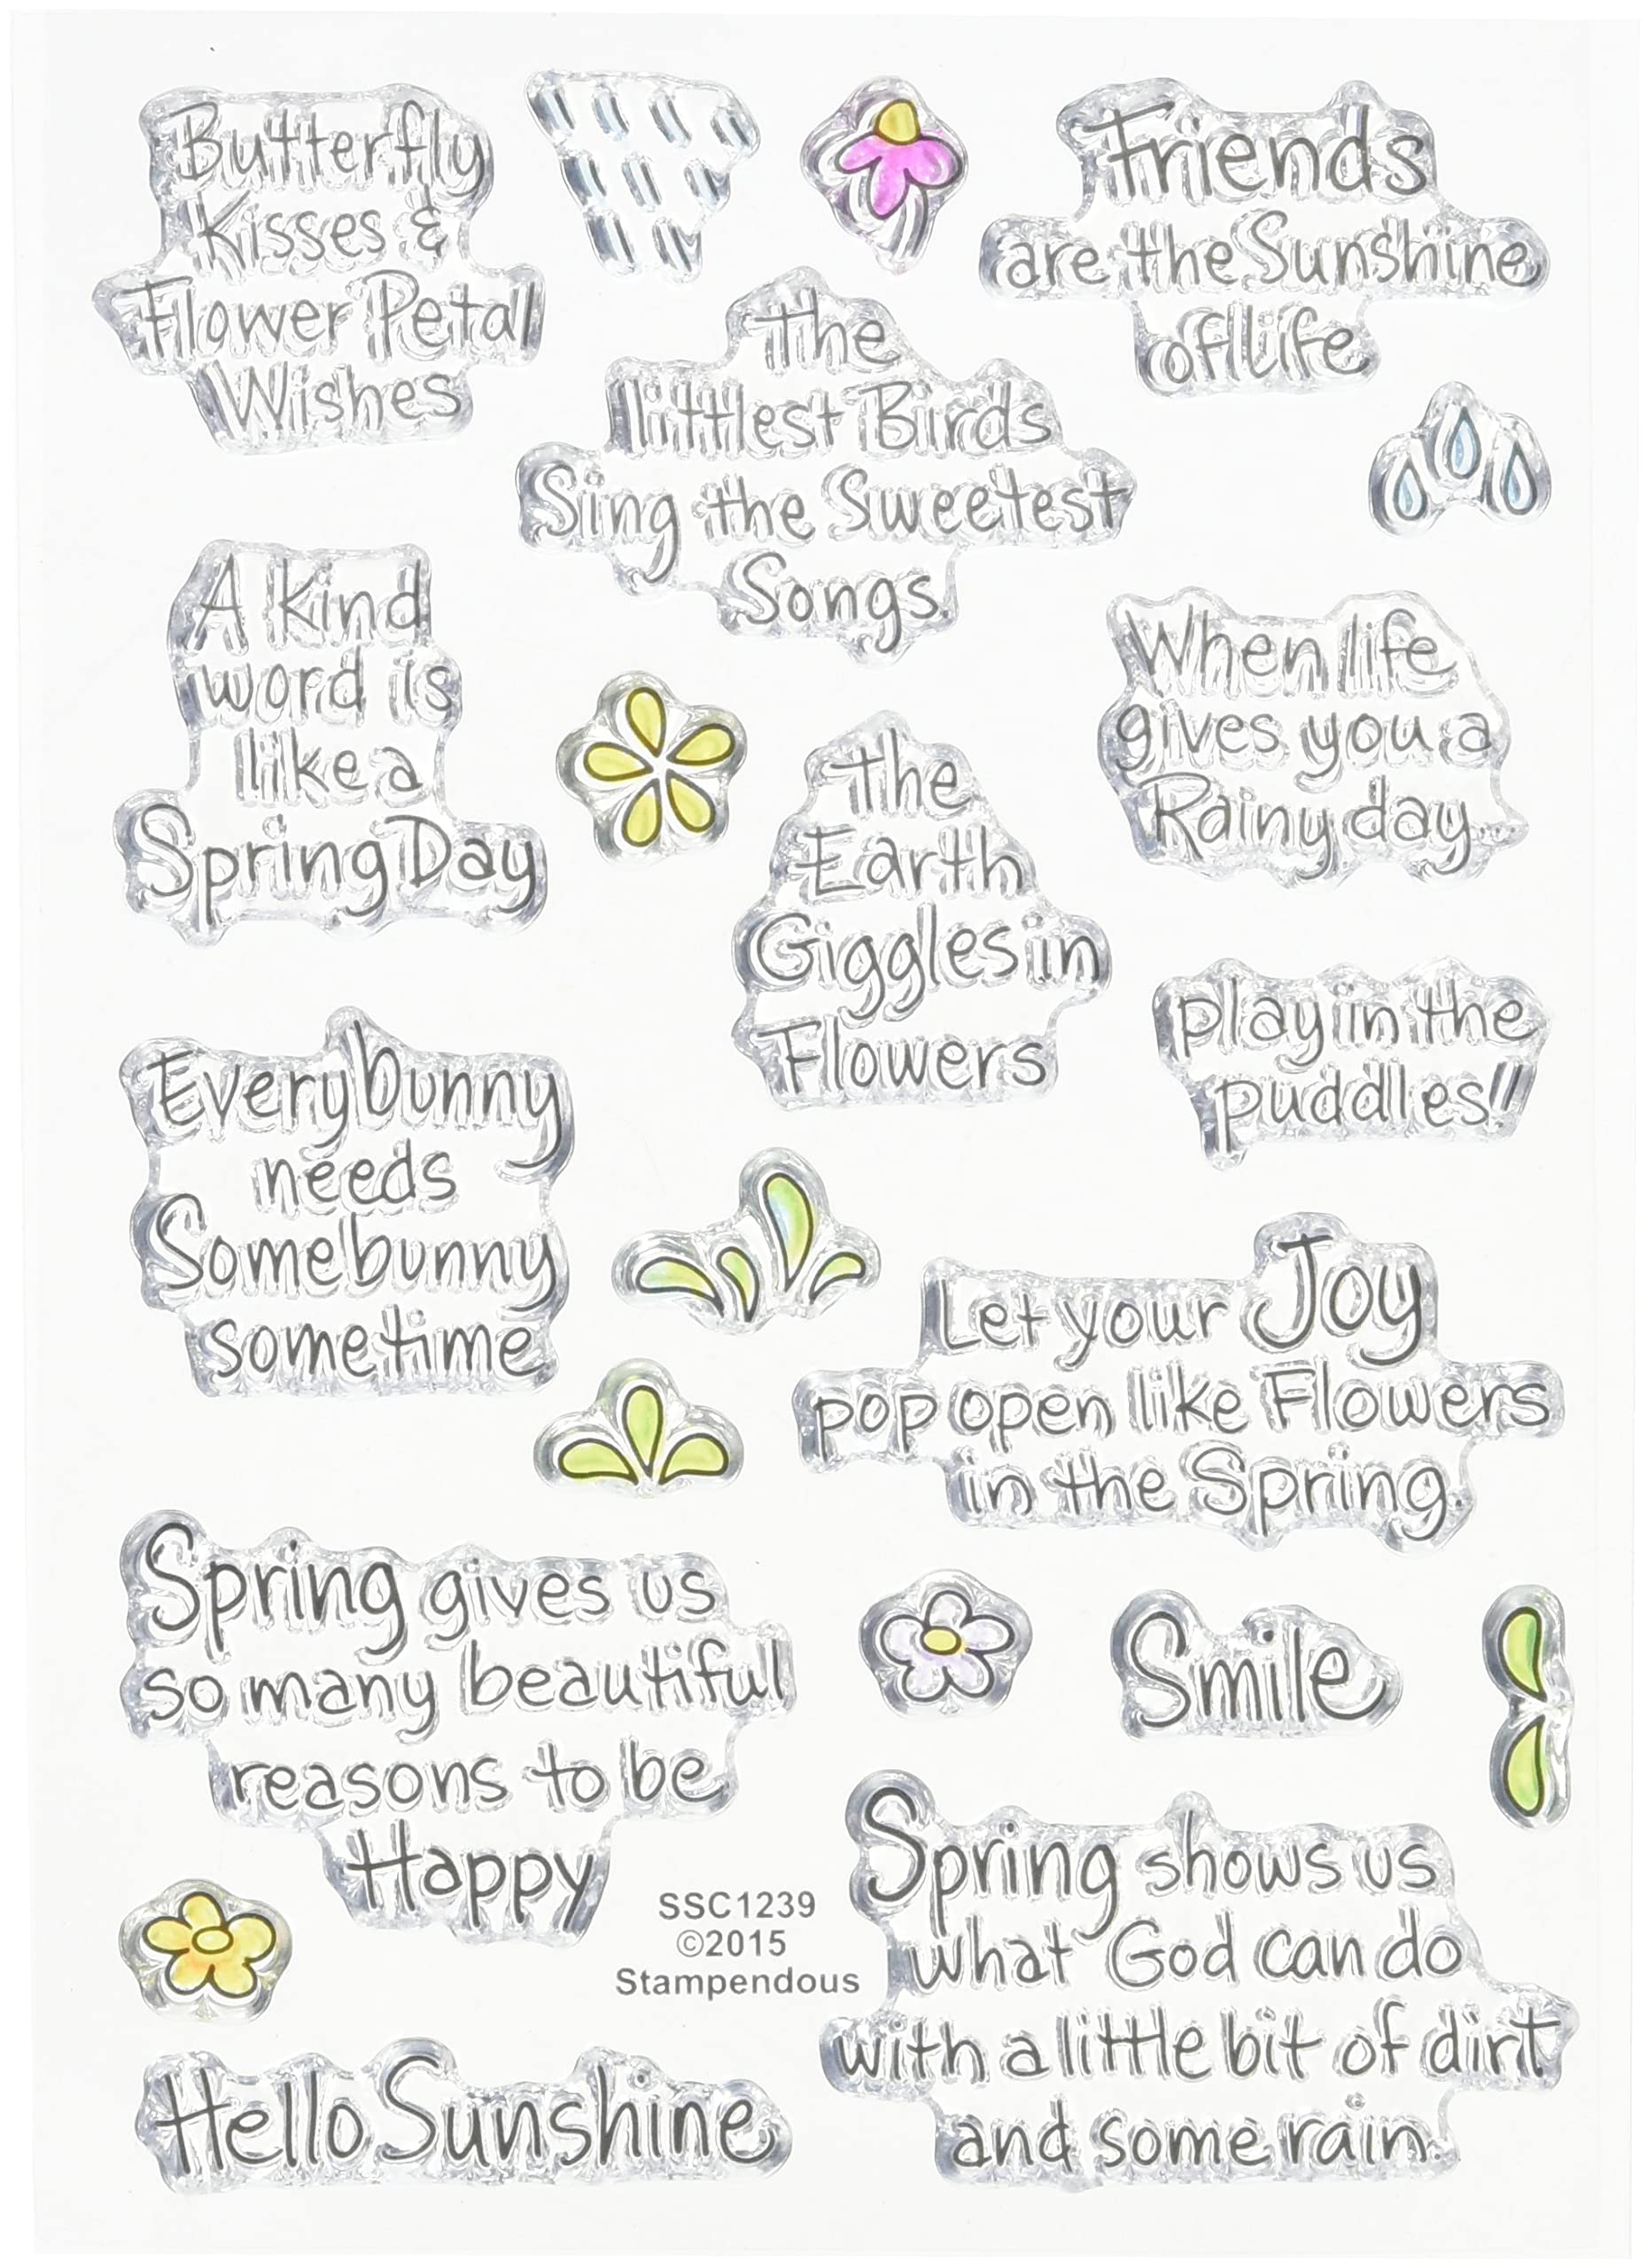 Butterfly
Kisses &
Flower Petal
Wishes
Friends
are the Sunshine
of life
the
littlest Birds
Sing the Sweetest
Songs.
A kind
word is
like a
Spring Day
When life
gives you a
Rainy day...
the
Earth
Giggles in
Flowers
play in the
puddles!!
Everybunny
needs
Somebunny
sometime
Let your Joy
pop open like Flowers
in the Spring.
Spring gives us
so many beautiful
reasons to be
Happy
Smile
Spring shows us
what God can do
with a little bit of dirt
and some rain.
SSC1239
©2015
Stampendous
Hello Sunshine